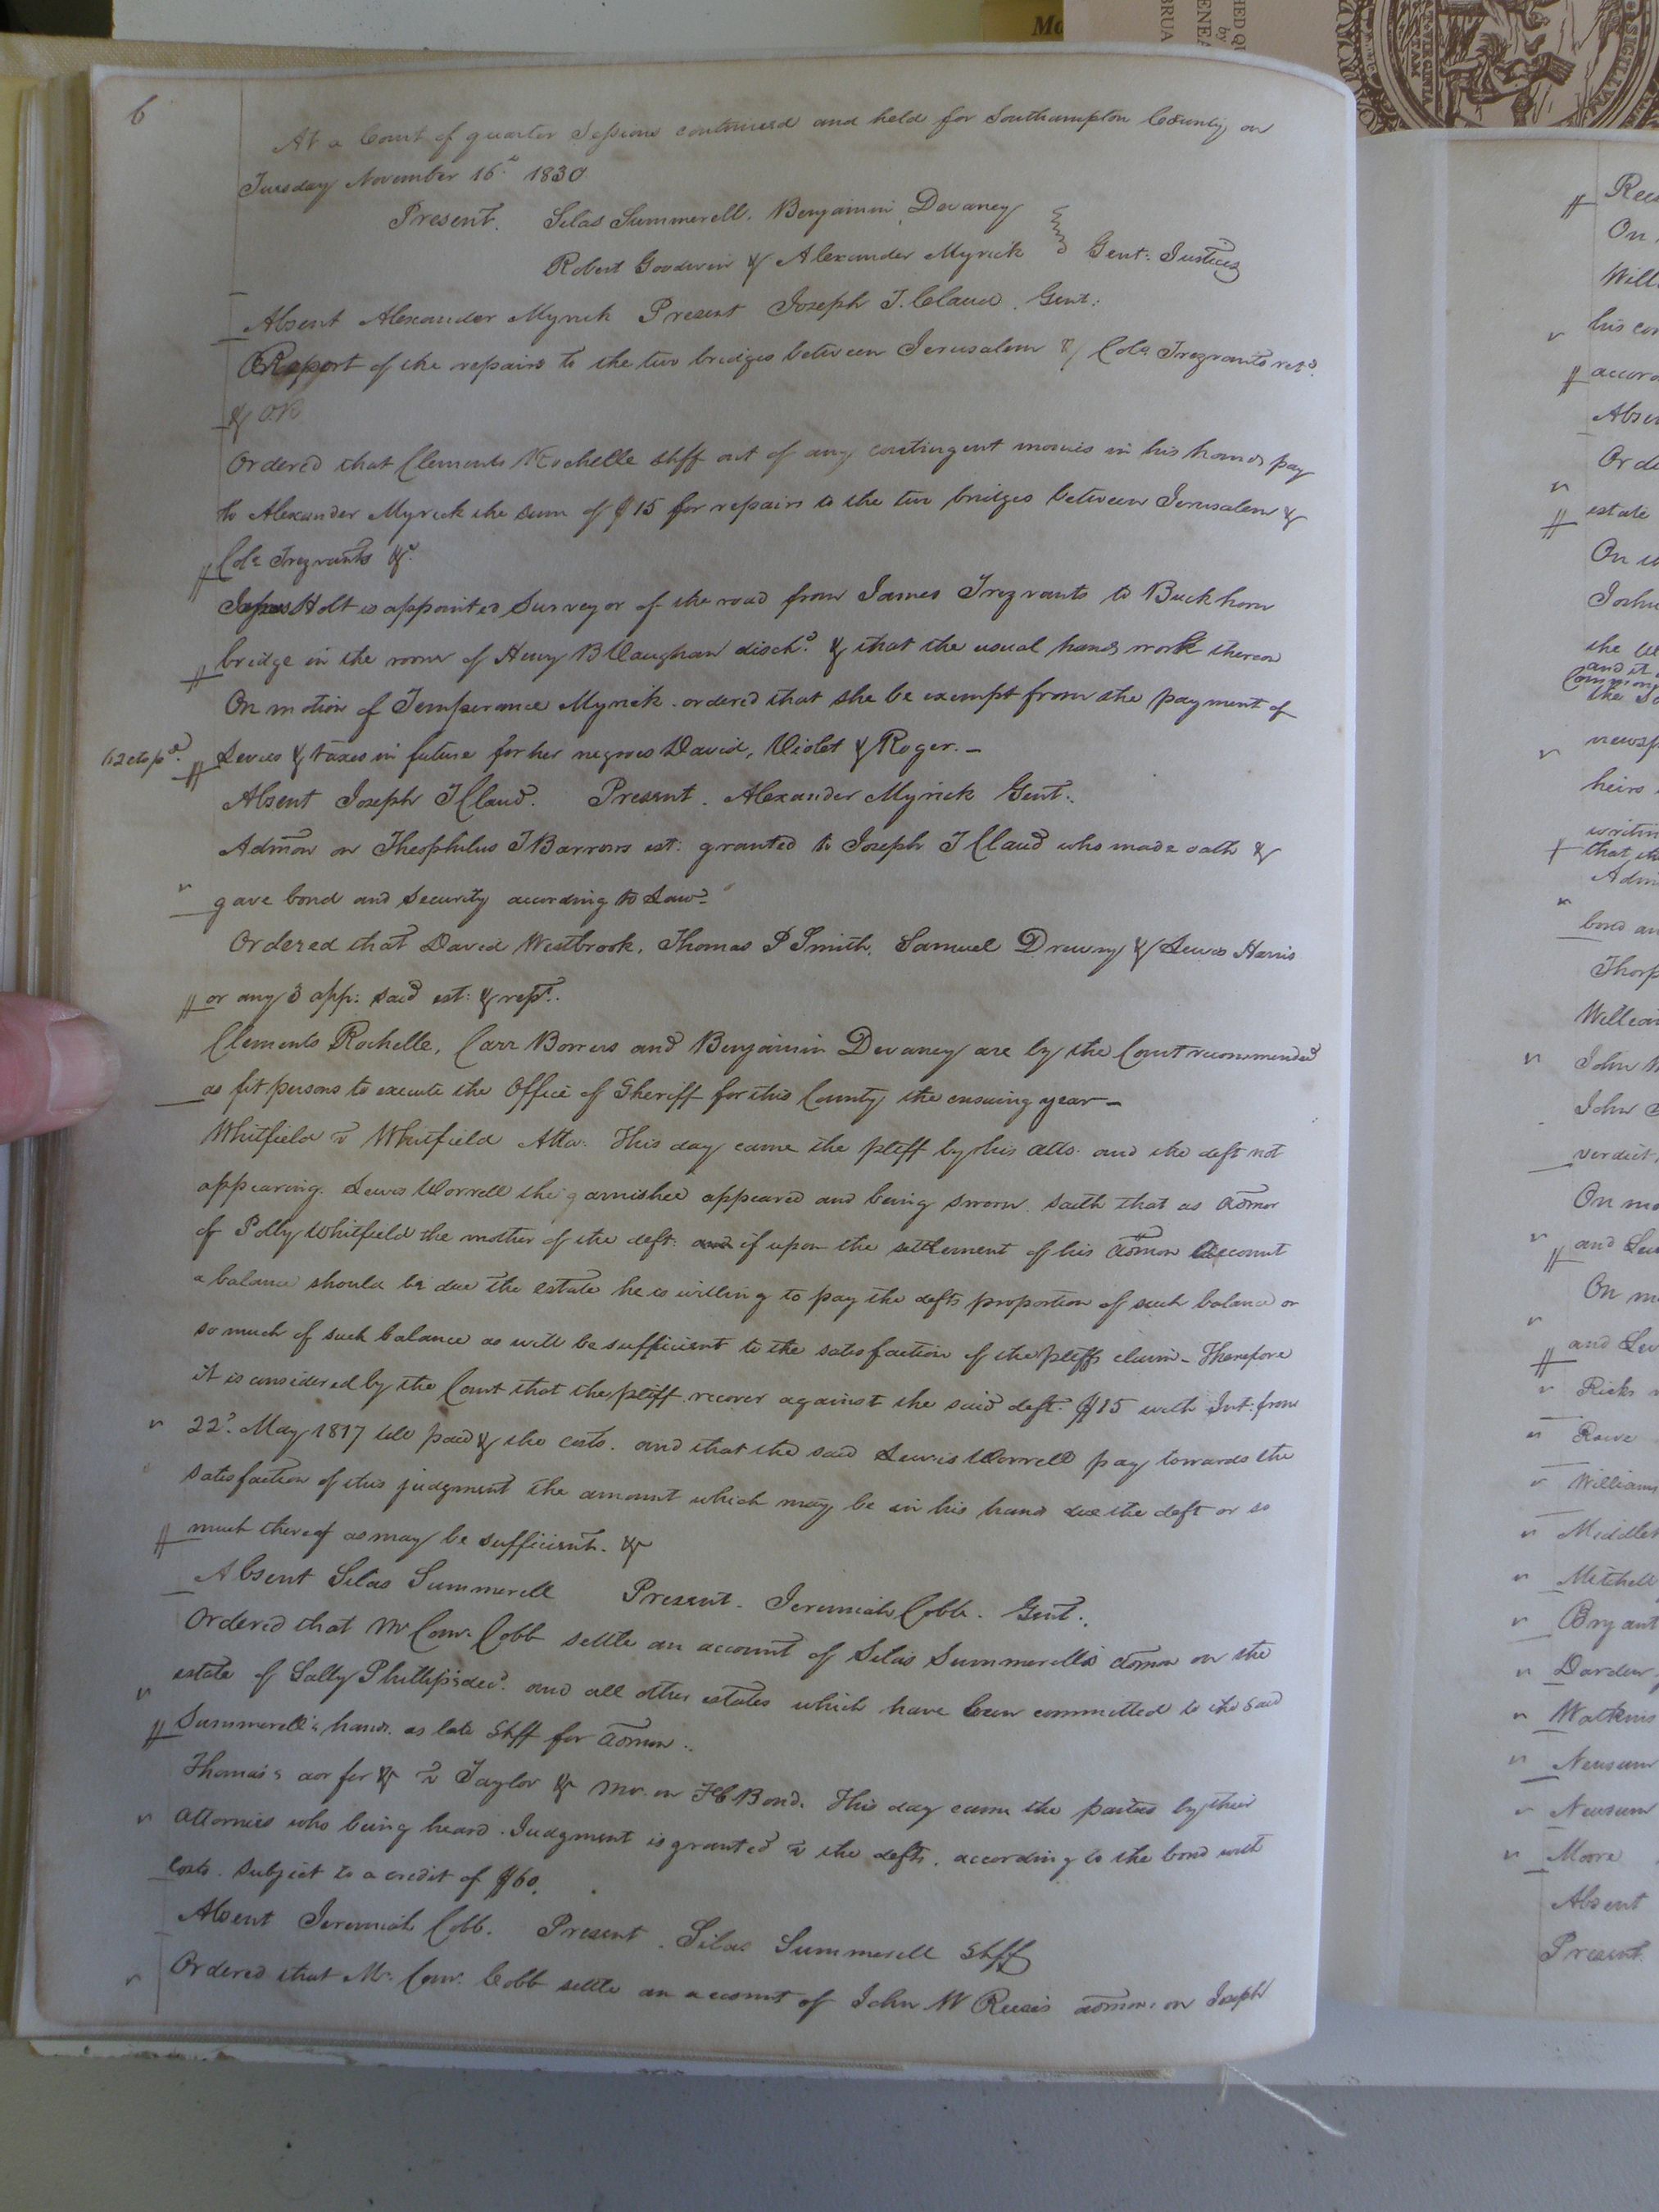 Mo
HED QU
by
GENEA
BRUA
SIGILLUM
6
At a Court of quarter Sessions continued and held for Southampton County on
Tuesday November 16.th 1830
Present. Silas Summerell. Benjamin Devaney
Robert Goodwin & Alexander Myrick } Gent: Justices
Absent Alexander Myrick Present Joseph T. Claud. Gent:
Report of the repairs to the two bridges between Jerusalem & Colo. Trezvants retd.
& OR
Ordered that Clements Rochelle shff out of any contingent monies in his hands pay
to Alexander Myrick the sum of $15 for repairs to the two bridges between Jerusalem &
Colo. Trezvants &c.
Holt is appointed Surveyor of the road from James Trezvants to Buckhorn
bridge in the room of Henry B Vaughan disch.d & that the usual hands work thereon
On motion of Temperance Myrick. ordered that she be exempt from the payment of
62 cts pd. Levies & taxes in future for her negroes David, Violet & Roger. -
Absent Joseph T Claud. Present. Alexander Myrick Gent:.
Admon on Theophilus T Barrows est: granted to Joseph T Claud who made oath &
gave bond and Security acording to Law.
Ordered that David Westbrook, Thomas P Smith, Samuel Drewry & Lewis Harris
or any 3 app: said est: & rept.
Clements Rochelle, Carr Bowers and Benjamin Devaney are by the Court recommended
as fit persons to execute the Office of Sheriff for this County the ensuing year -
Whitfield v Whitfield Atta: This day came the pltff by his atto. and the deft not
appearing. Lewis Worrell the garnishee appeared and being sworn. saith that as admor
of Polly Whitfield the mother of the deft: and if upon the settlement of his admon account
a balance should be due the estate he is willing to pay the defts proportion of such balance or
so much of such balance as will be sufficient to the satisfaction of the pltffs claim - Therefore
it is considered by the Court that the pltff recover against the said deft. $15 with Int: from
22d. May 1817 till paid & the costs. and that the said Lewis Worrell pay towards the
satisfaction of this judgment the amount which may be in his hand due the deft or so
much thereof as may be sufficient. &
Absent Silas Summerell Present. Jeremiah Cobb. Gent:.
Ordered that Mr Comr. Cobb settle an account of Silas Summerell's admon on the
estate of Sally Phillips decd. and all other estates which have been committed to the said
Summerell's hands. as late Shff for admon.
Thomas's aor for & v Taylor & mo. on FC Bond. This day came the parties by their
attornies who being heard. Judgment is granted v the defts. according to the bond with
Costs. Subject to a credit of $60.
Absent Jeremiah Cobb. Present. Silas Summerell Shff
Ordered that Mr. Comr. Cobb settle an account of John W Reese's admon. on Joseph
On
Will
his con
accord
Absen
Orde
estate
On
the
and it
the
newsp
heirs
writin
that the
Adm
bond an
Thorp
William
John
John
verdict
On mo
and Lew
On mo
and Lew
Ricks
Rowe
Williams
Middle
Mitchell
Bryant
Darden
Watkins
Newsum
Newsum
Moore
Absent
Present